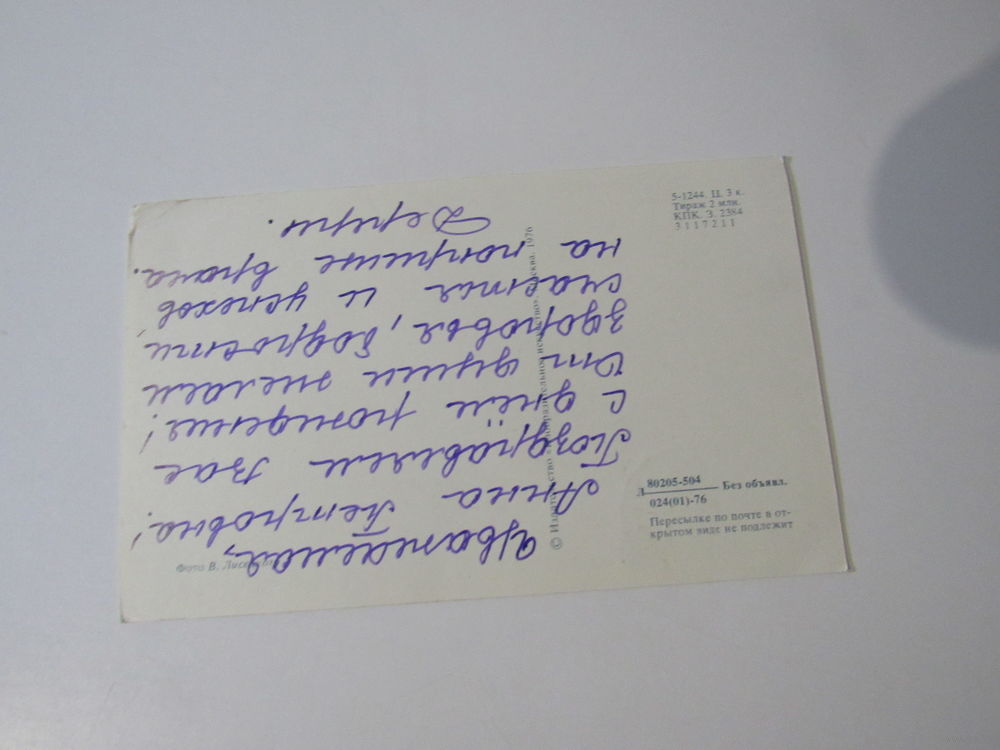 Уважаемая,
Анна Петровна!
Поздравляем Вас
с днём рождения!
От души желаем
здоровья, бодрости,
счастья и успехов
на поприще врача.
5-1244. Ц. 3 к.
Тираж 2 млн.
КПК. З. 2384
3117211
© Издательство «Изобразительное искусство». Москва. 1976
Д 80205-504
024(01)-76 Без объявл.
Пересылке по почте в от-
крытом виде не подлежит
Фото В.